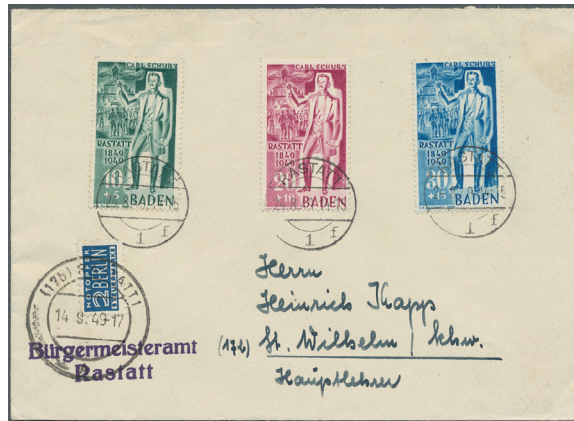 CARL SCHURZ
RASTATT
1849
1949
10
+5
BADEN
CARL SCHURZ
RASTATT
1849
1949
BADEN
CARL SCHURZ
RASTATT
1849
1949
30
+15
BADEN
1 f
RASTATT
1 f
1 f
NOTOPFER
2 BERLIN
STEUERMARKE
(17b) RASTATT 1
14.9.49-17
Bürgermeisteramt
Rastatt
Herrn
Heinrich Kapp
(17b) St. Wilhelm / Schw.
Hauptlehrer